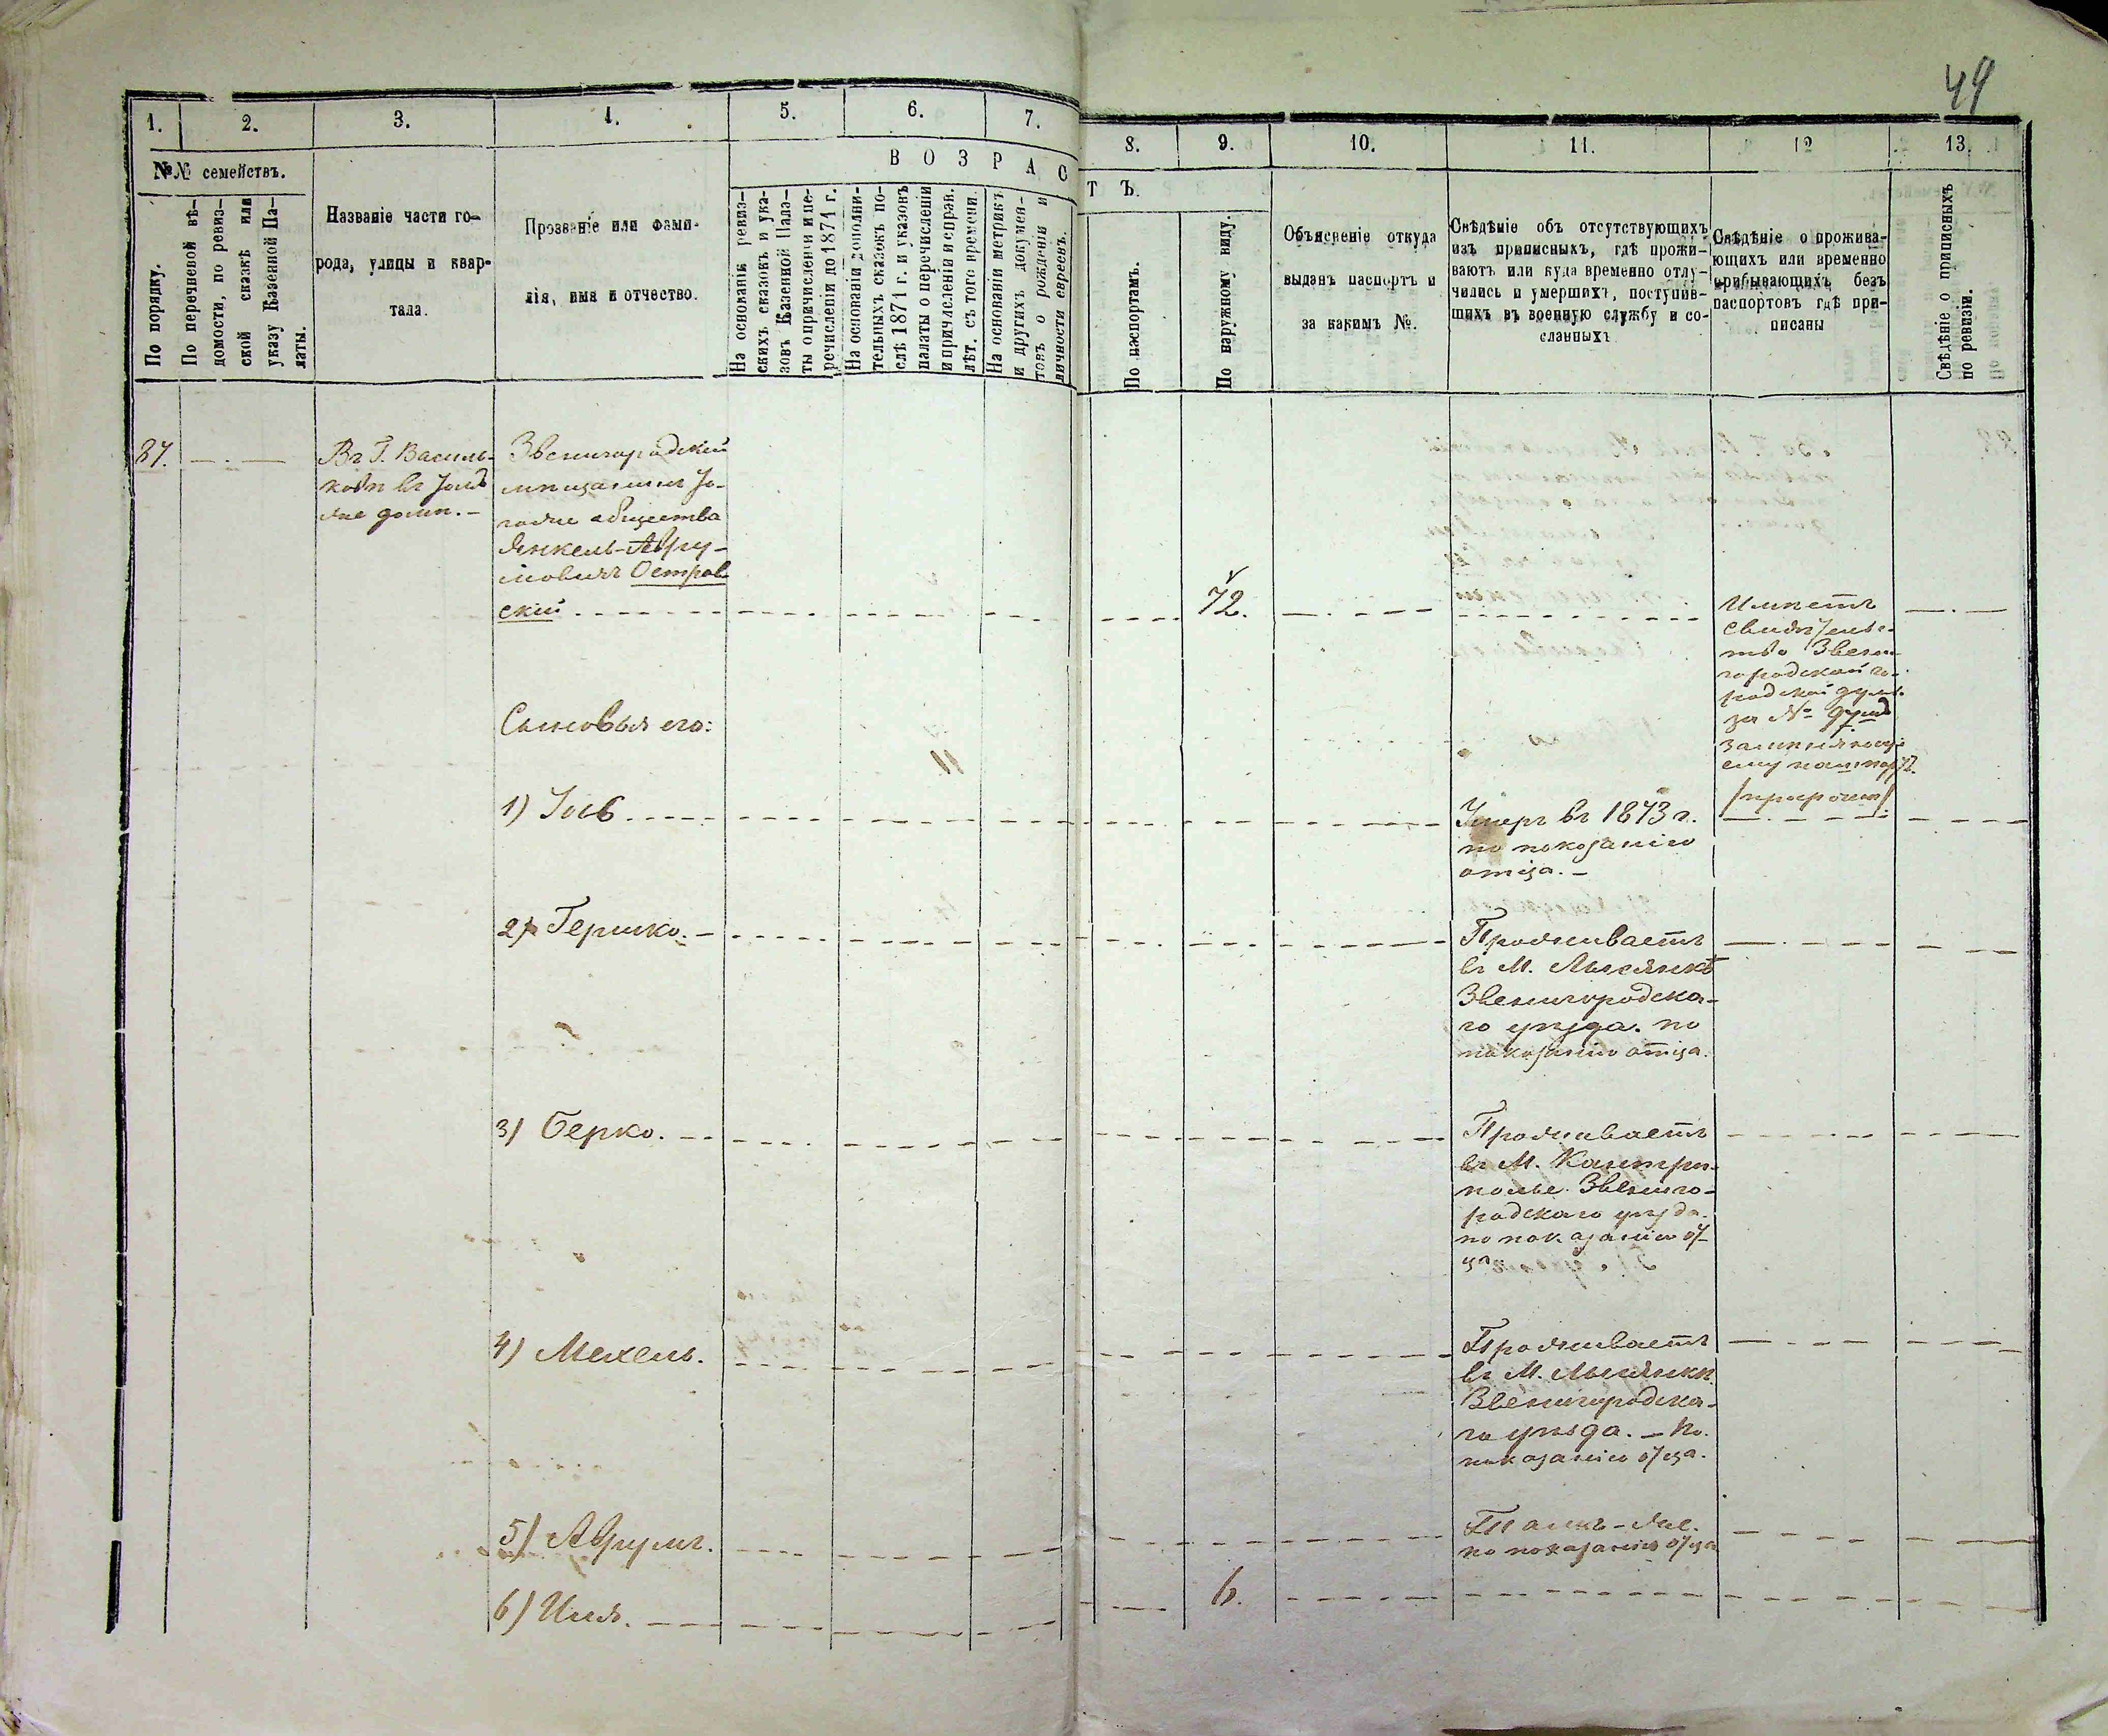 49
1. 2. 3. 4. 5. 6. 7. 8. 9. 10. 11. 12 13.
№№ семействъ.
По порядку.
По перечневой вѣ-
домости, по ревиз-
ской сказкѣ или
указу Казенной Па-
латы.
Названіе части го-
рода, улицы и квар-
тала.
Прозваніе или фами-
лія, имя и отчество.
ВОЗРАСТЪ.
На основаніи ревиз-
скихъ сказокъ и ука-
зовъ Казенной Пала-
ты о причисленіи и пе-
речисленіи до 1871 г.
На основаніи дополни-
тельныхъ сказокъ по-
слѣ 1871 г. и указовъ
палаты о перечисленіи
и причисленіи и справ.
лѣт. съ того времени.
На основаніи метрикъ
и другихъ докумен-
товъ о рожденіи и
личности евреевъ.
По паспортамъ.
По наружному виду.
Объясненіе откуда
выданъ паспортъ и
за какимъ №.
Свѣдѣніе объ отсутствующихъ
изъ приписныхъ, гдѣ прожи-
ваютъ или куда временно отлу-
чились и умершихъ, поступив-
шихъ въ военную службу и со-
сланныхъ
Свѣдѣніе о прожива-
ющихъ или временно
прибывающихъ безъ
паспортовъ гдѣ при-
писаны
Свѣдѣніе о приписныхъ
по ревизіи.
87.
Въ Г. Василь-
ковѣ въ
домѣ.
Звенигородскій
мѣщанинъ
общества
Янкель-Авру-
мовичъ Остров
скій
72.
Имѣетъ
свидѣтельс-
тво Звени-
городской го-
родской думы
за № 97
ему паспортъ.
Сыновья его:
1) Іось
Умеръ въ 1873 г.
по показанію
отца.
2) Гершко.
Проживаетъ
въ М. Лысянкѣ
Звенигородска-
го уѣзда. по
показанію отца.
3) Берко.
Проживаетъ
въ М.
полье Звениго-
родскаго уѣзда.
по показанію от-
ца
4) Мехель.
Проживаетъ
въ М. Лысянкѣ
Звенигородска-
го уѣзда. – по
показанію отца.
5) Аврумъ.
Тамъ-же.
по показанію отца
6)
6.